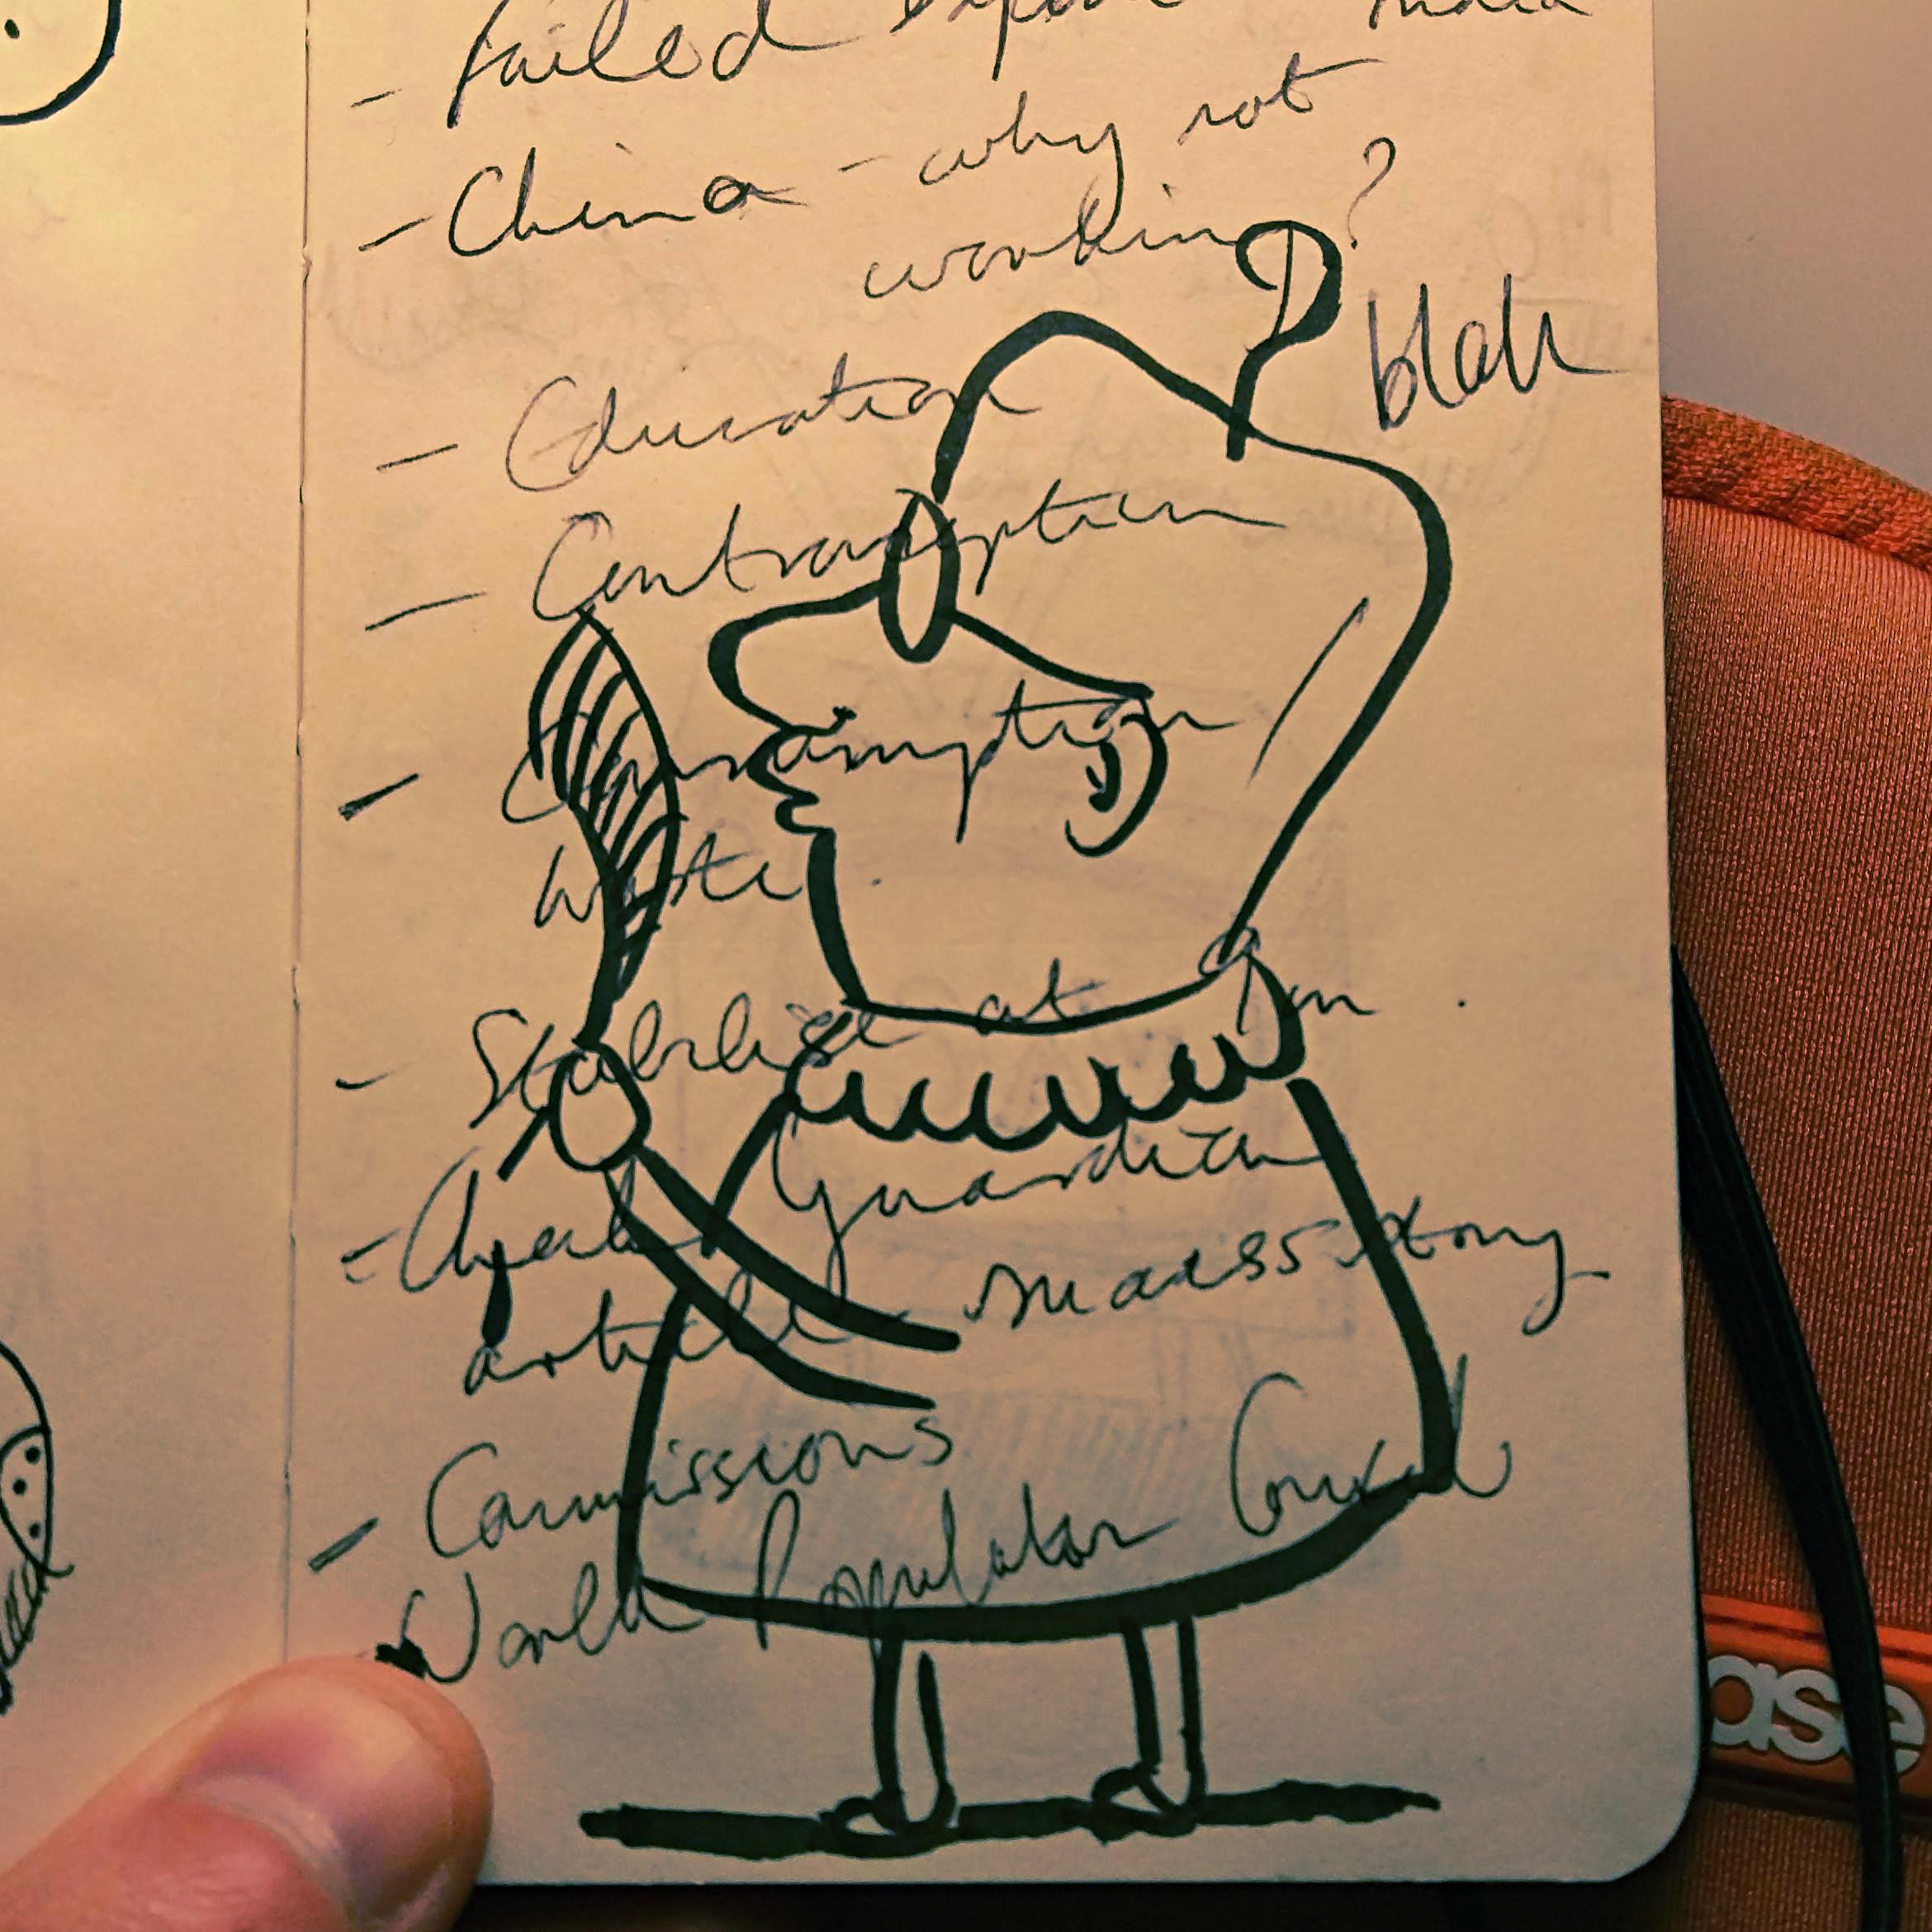 - failed India
- China - why not
working?
blah
- Education
- Contraception
- Consumption /
waste.
- Stabilise at
Guardian
article
- Commissions
World Population Council
ase